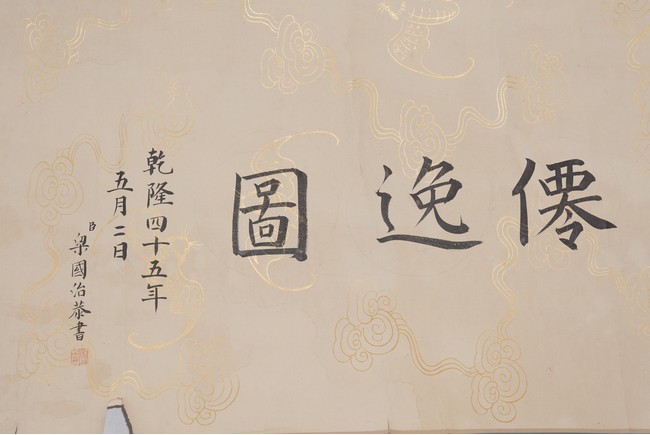 僊逸圖
乾隆四十五年
五月二日
臣梁國治恭書